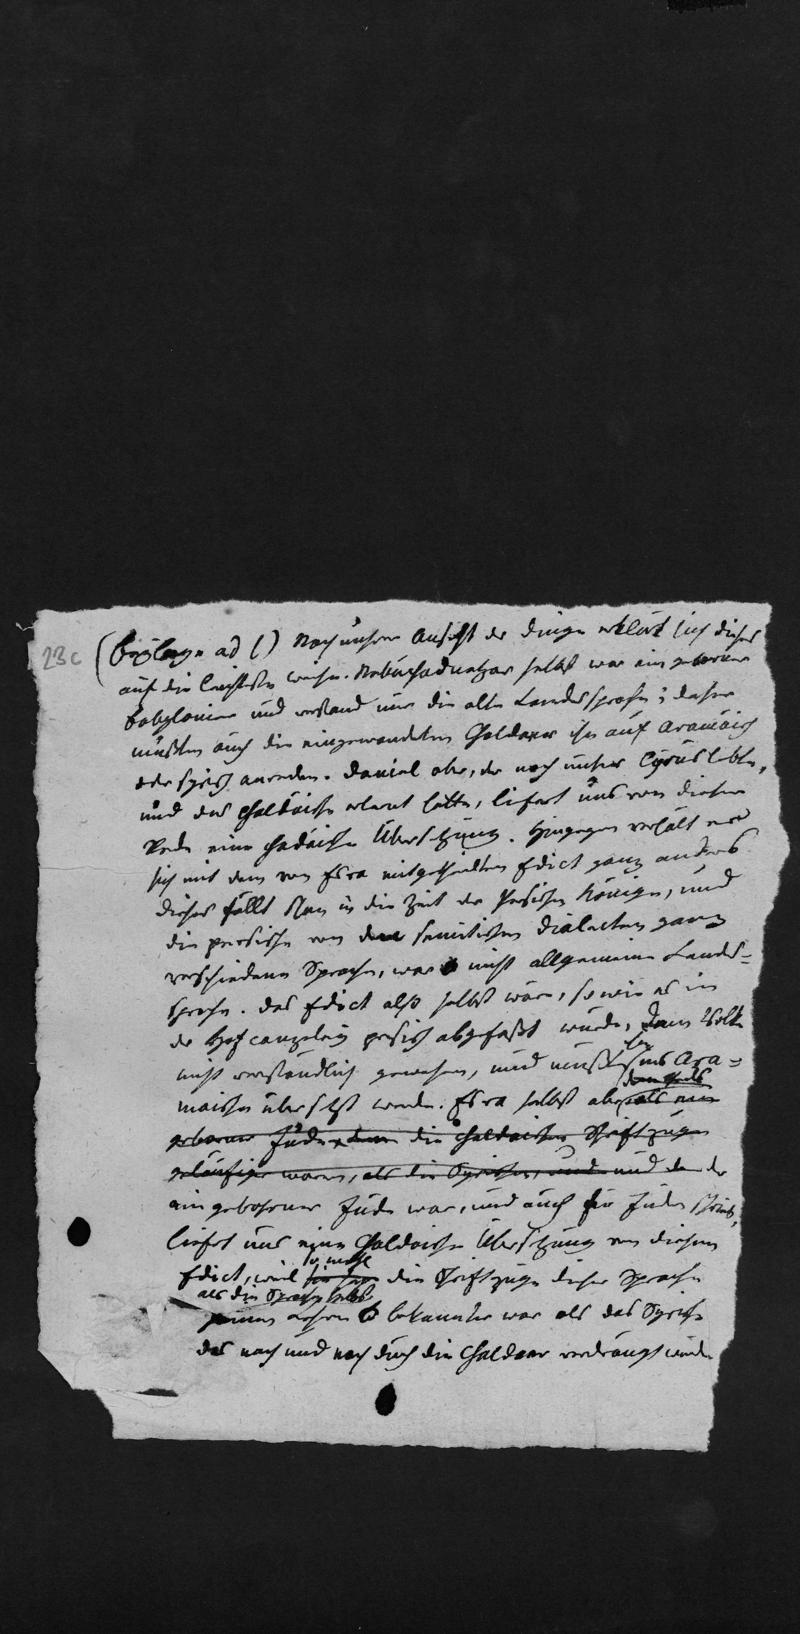 23c (Beylage ad () Nach unsrer Ansicht der Dinge erklärt sich dieses
auf die leichteste weise. Nebuchadnetzar selbst war ein geborner
Babylonier und verstand nur die alte Landessprache; daher
mußten auch die eingewanderten Chaldaer ihn auf Aramäisch
oder syrisch anreden. Daniel aber, der noch unter Cyrus lebte,
und das Chaldäische erlernt hatte, liefert uns von dieser
Rede eine Chadäische Übersetzung. Hingegen verhält es
sich mit dem von Esra mitgetheilten Edict ganz anders
dieses fällt schon in die Zeit der Persischen Könige, und
die persische von den semitischen Dialecten ganz
verschiedene Sprache, war nicht allgemeine Landes-
sprache. Das Edict also selbst wäre, so wie es in
der Hofcanzeley persisch abgefaßt wurde, dem Volke
nicht verständlich gewesen, und mußte ins Ara-
maische übersetzt werden. Esra selbst aber als ein
geborner Jude, dem die Chaldaischen Schriftzüge
geläufiger waren, als die Syrischen, und und da er
ein gebohrner Jude war, und auch für Juden schrieb,
liefert uns eine Chaldaische Übersetzung von diesem
Edict, weil sowohl die Schriftzüge dieser Sprache
als die Sprache selbst
bekannter war als das Syrische
das nach und nach durch die Chaldaer verdrängt wurde